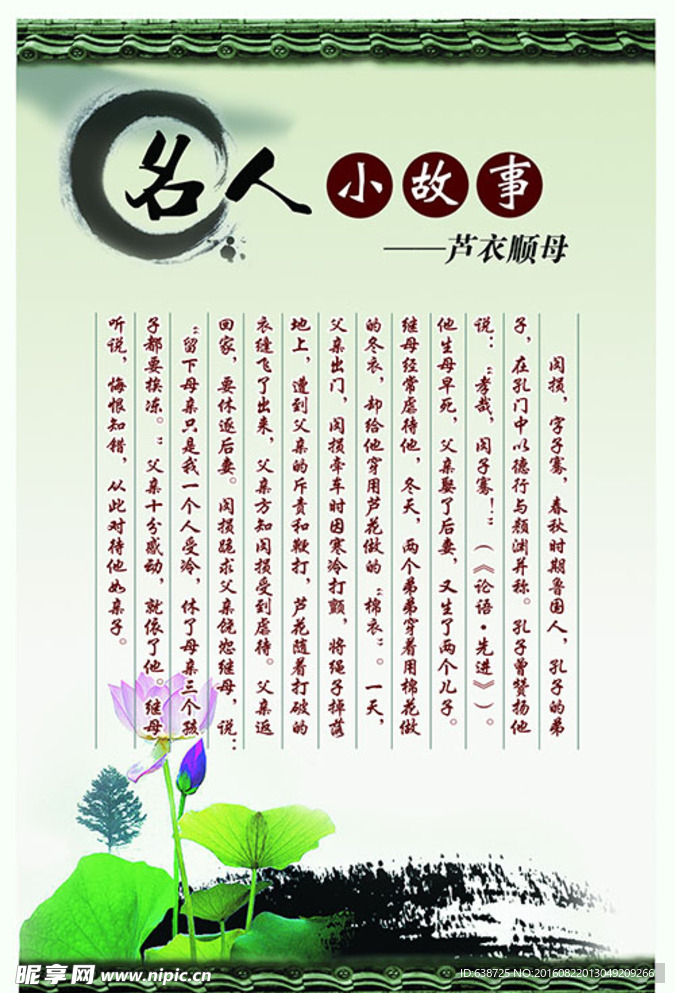 名人小故事
——芦衣顺母
闵损，字子骞，春秋时期鲁国人，孔子的弟
子，在孔门中以德行与颜渊并称。孔子曾赞扬他
说：“孝哉，闵子骞！”（《论语·先进》）。
他生母早死，父亲娶了后妻，又生了两个儿子。
继母经常虐待他，冬天，两个弟弟穿着用棉花做
的冬衣，却给他穿用芦花做的“棉衣”。一天，
父亲出门，闵损牵车时因寒冷打颤，将绳子掉落
地上，遭到父亲的斥责和鞭打，芦花随着打破的
衣缝飞了出来，父亲方知闵损受到虐待。父亲返
回家，要休逐后妻。闵损跪求父亲饶恕继母，说：
“留下母亲只是我一个人受冷，休了母亲三个孩
子都要挨冻。”父亲十分感动，就依了他。继母
听说，悔恨知错，从此对待他如亲子。
昵享网 www.nipic.cn
ID:638725 NO:20160822013049209266